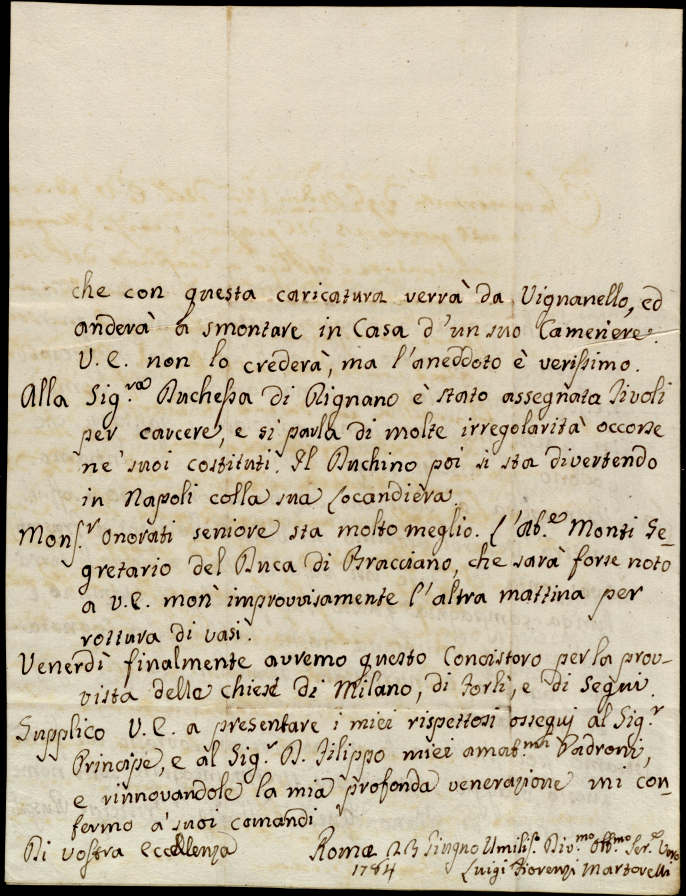 che con questa caricatura verrà da Vignanello, ed
anderà à smontare in Casa d'un suo Cameriere.
V.E. non lo crederà, ma l'aneddoto è verissimo.
Alla Sig.ra Duchessa di Rignano è stato assegnata Tivoli
per carcere, e si parla di molte irregolarità occorse
ne' suoi costituti. Il Duchino poi si sta divertendo
in Napoli colla sua Locandiera.
Mons.r Onorati seniore sta molto meglio. L'ab.e Monti Se-
gretario del Duca di Bracciano, che sarà forse noto
a V.E. morì improvvisamente l'altra mattina per
rottura di vasi.
Venerdì finalmente avremo questo Concistoro per la prov-
vista delle chiese di Milano, di Forlì, e di Segni.
Supplico V.E. a presentare i miei rispettosi ossequj al Sig.r
Principe, e al Sig.r D. Filippo miei amat.mi Padroni,
e rinnovandole la mia profonda venerazione mi con-
fermo a' suoi comandi
Di vostra eccellenza Roma 23 Giugno Umilis.o Div.mo Obb.mo Ser.e Vero
1784 Luigi Fiorenzi Martorelli